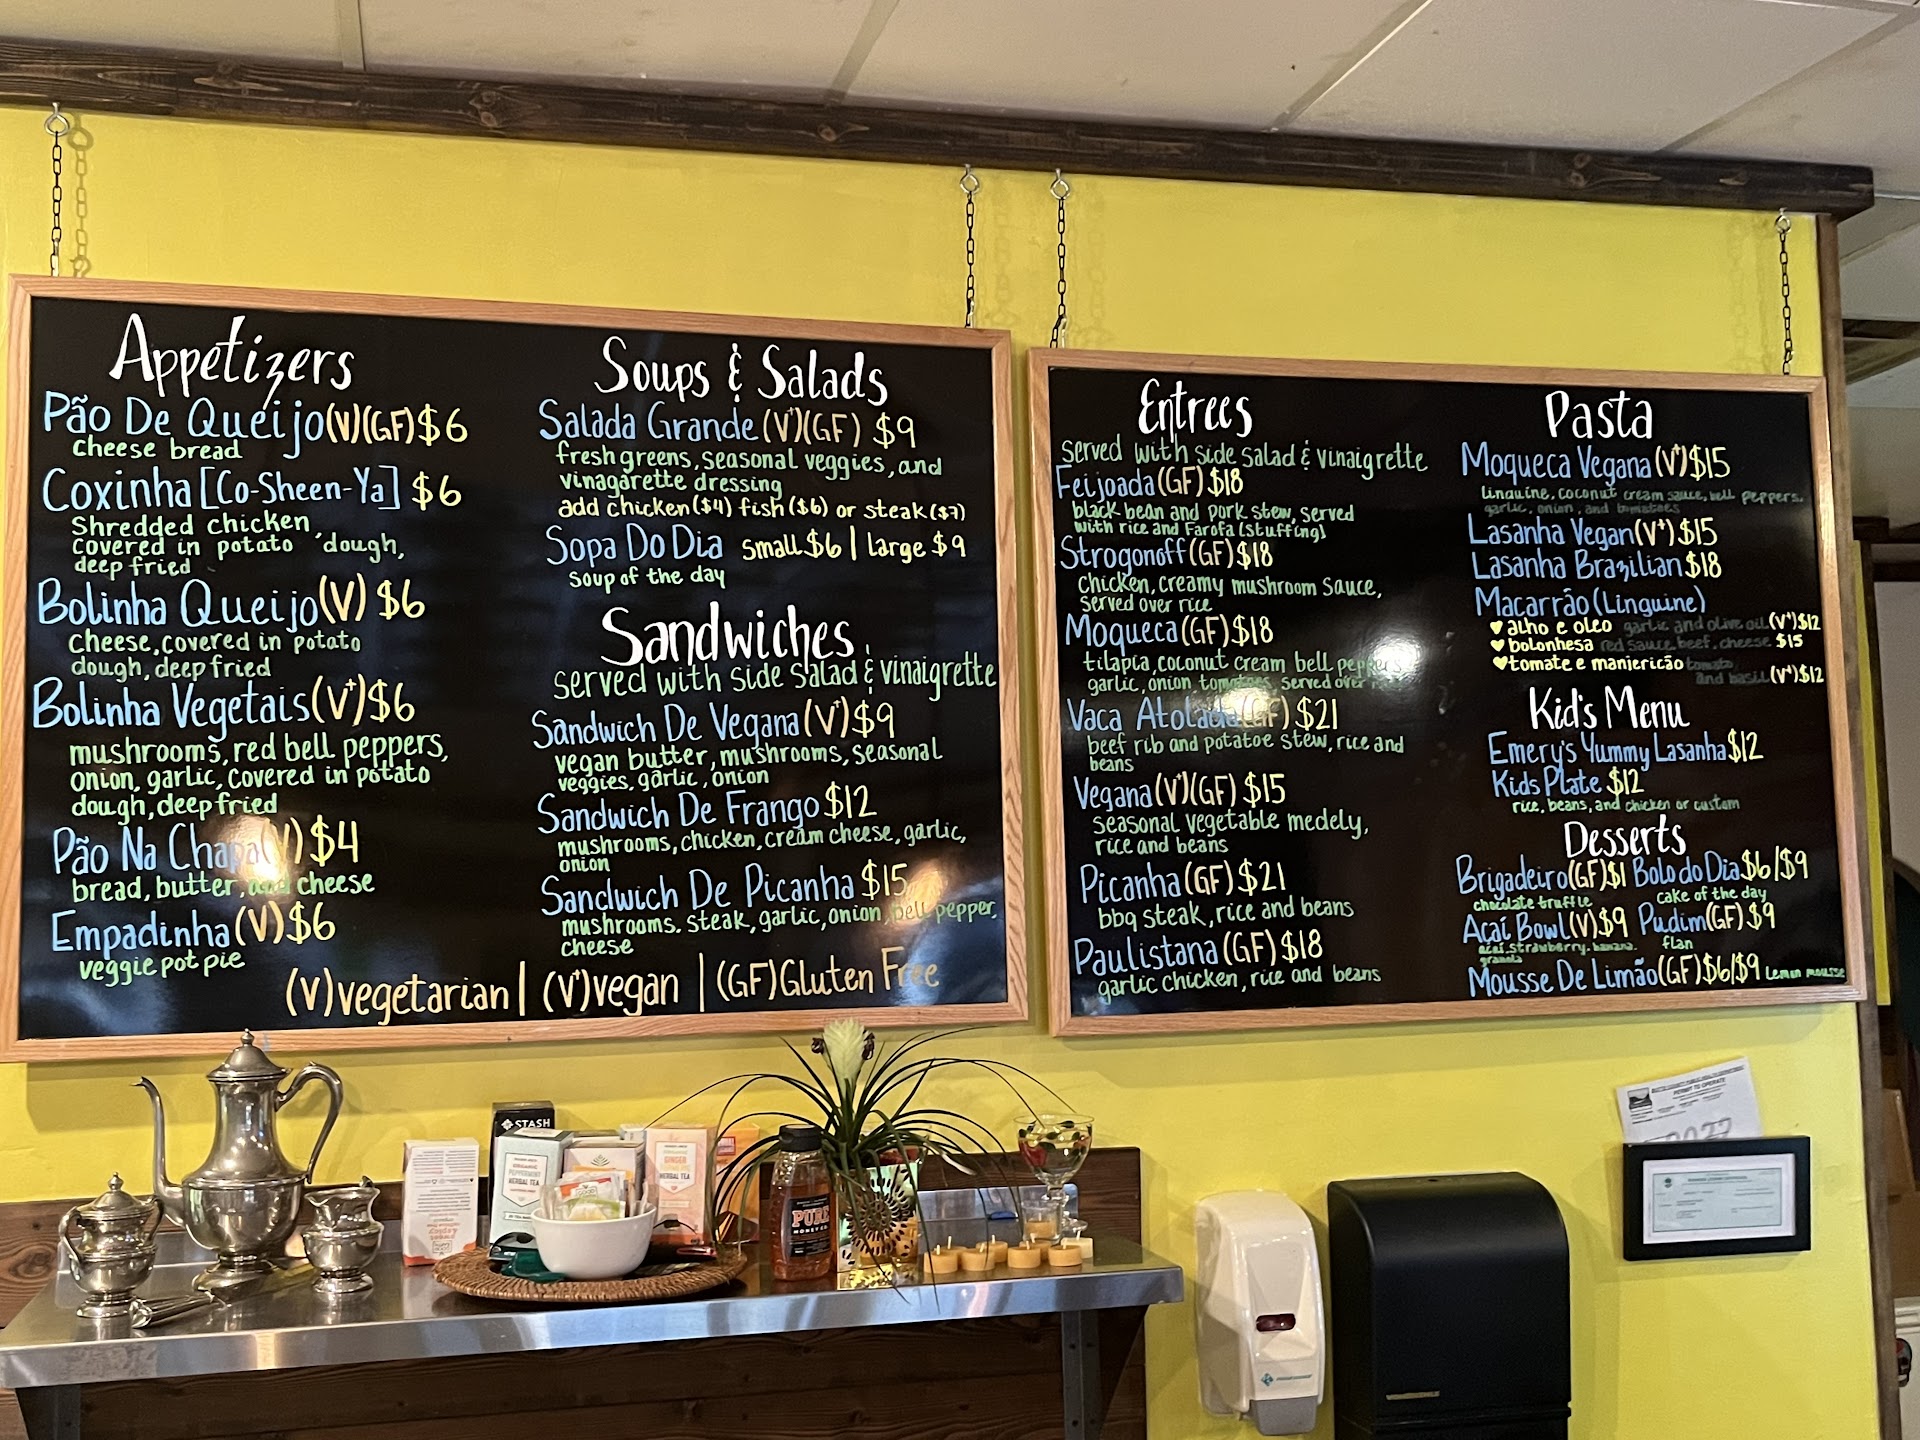 Appetizers
Pão De Queijo (V)(GF) $6
cheese bread
Coxinha [Co-Sheen-Ya] $6
Shredded chicken,
covered in potato dough,
deep fried
Bolinha Queijo (V) $6
Cheese, covered in potato
dough, deep fried
Bolinha Vegetais (V+) $6
mushrooms, red bell peppers,
onion, garlic, covered in potato
dough, deep fried
Pão Na Chapa (V) $4
bread, butter, and cheese
Empadinha (V) $6
veggie pot pie
Soups & Salads
Salada Grande (V+)(GF) $9
fresh greens, seasonal veggies, and
vinagarette dressing
add chicken ($4) fish ($6) or steak ($7)
Sopa Do Dia small $6 | large $9
soup of the day
Sandwiches
served with side salad & vinaigrette
Sandwich De Vegana (V+) $9
vegan butter, mushrooms, seasonal
veggies, garlic, onion
Sandwich De Frango $12
mushrooms, chicken, cream cheese, garlic,
onion
Sandwich De Picanha $15
mushrooms. steak, garlic, onion, bell pepper,
cheese
(V) vegetarian | (V+) vegan | (GF) Gluten Free
Entrees
Served with side salad & vinaigrette
Feijoada (GF) $18
black bean and pork stew, served
with rice and Farofa [stuffing]
Strogonoff (GF) $18
chicken, creamy mushroom sauce,
served over rice
Moqueca (GF) $18
tilapia, coconut cream bell peppers
garlic, onion tomatoes, served over
Vaca Atolada (GF) $21
beef rib and potatoe stew, rice and
beans
Vegana (V+)(GF) $15
seasonal vegetable medely,
rice and beans
Picanha (GF) $21
bbq steak, rice and beans
Paulistana (GF) $18
garlic chicken, rice and beans
Pasta
Moqueca Vegana (V+) $15
Linguine, coconut cream sauce, bell peppers,
garlic, onion, and tomatoes
Lasanha Vegan (V+) $15
Lasanha Brazilian $18
Macarrão (Linguine)
♥ alho e oleo garlic and olive oil (V+) $12
♥ bolonhesa red sauce, beef, cheese $15
♥ tomate e manjericão tomato
and basil (V+) $12
Kid's Menu
Emery's Yummy Lasanha $12
Kids Plate $12
rice, beans, and chicken or custom
Desserts
Brigadeiro (GF) $1 Bolo do Dia $6/$9
chocolate truffle cake of the day
Açaí Bowl (V) $9 Pudim (GF) $9
açaí, strawberry, banana, flan
granola
Mousse De Limão (GF) $6/$9 Lemon mousse
PERMIT TO OPERATE
STASH
ORGANIC
PEPPERMINT
HERBAL TEA
GINGER
HERBAL TEA
PURE
HONEY